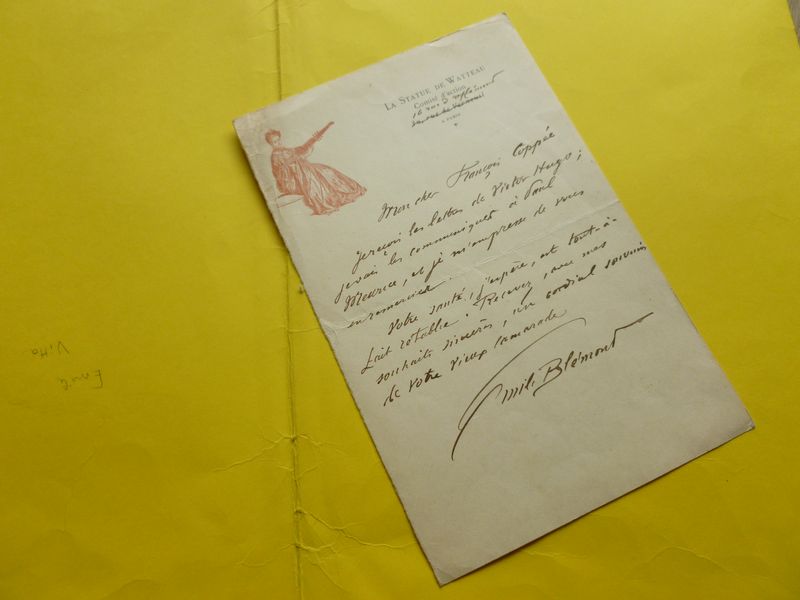 LA STATUE DE WATTEAU
Comité d'action
16 rue
A PARIS
Mon cher François Coppée
Je reçois les lettres de Victor Hugo ;
je vais les communiquer à Paul
Meurice, et je m'empresse de vous
en remercier.
Votre santé, j'espère, est tout-à-
fait rétablie. Recevez, avec mes
souhaits sincères, un cordial souvenir
de votre vieux camarade
Emile Blémont